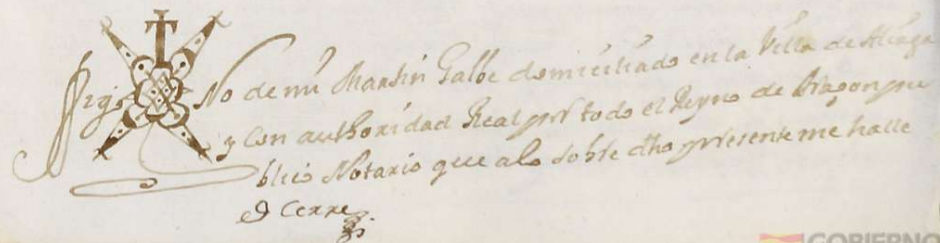 Sig No de mi Martin Galbe domiciliado en la Villa de Aliaga
y con authoridad Real por todo el Reyno de Aragon pu
blico Notario que a lo sobre dho presente me halle
et Cerre
GOBIERNO